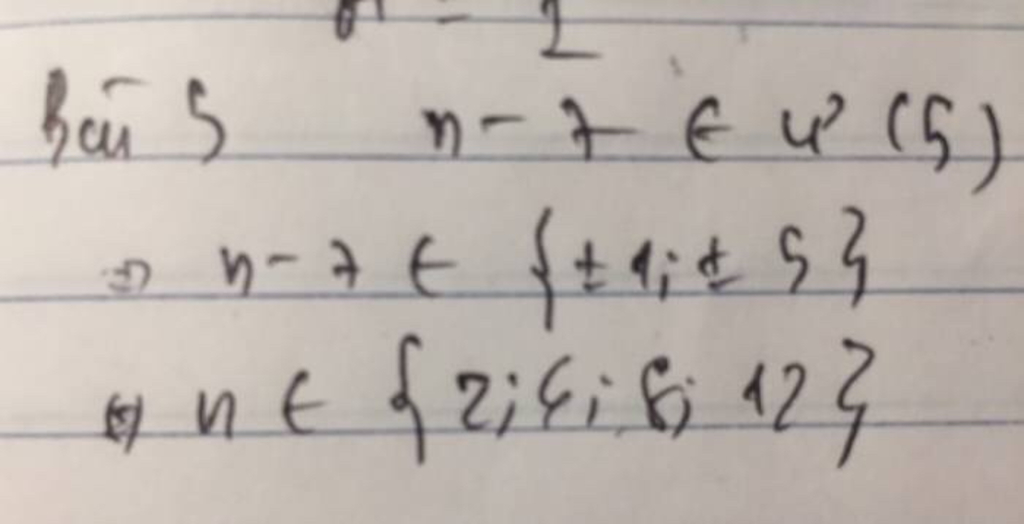 = 2
Bài 5 n - 7 ∈ Ư (5)
=> n - 7 ∈ {±1; ± 5}
<=> n ∈ {2; 6; 8; 12}